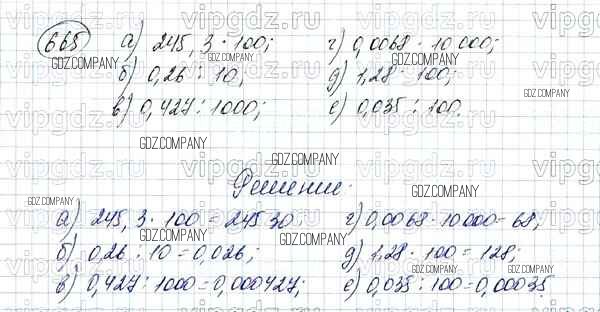 665 а) 245,3 · 100; г) 0,0068 · 10 000;
б) 0,26 : 10; д) 1,28 · 100;
в) 0,427 : 1000; е) 0,035 : 100.
Решение.
а) 245,3 · 100 = 24530; г) 0,0068 · 10000 = 68;
б) 0,26 : 10 = 0,026; д) 1,28 · 100 = 128;
в) 0,427 : 1000 = 0,000427; е) 0,035 : 100 = 0,00035.
GDZ.COMPANY
vipgdz.ru